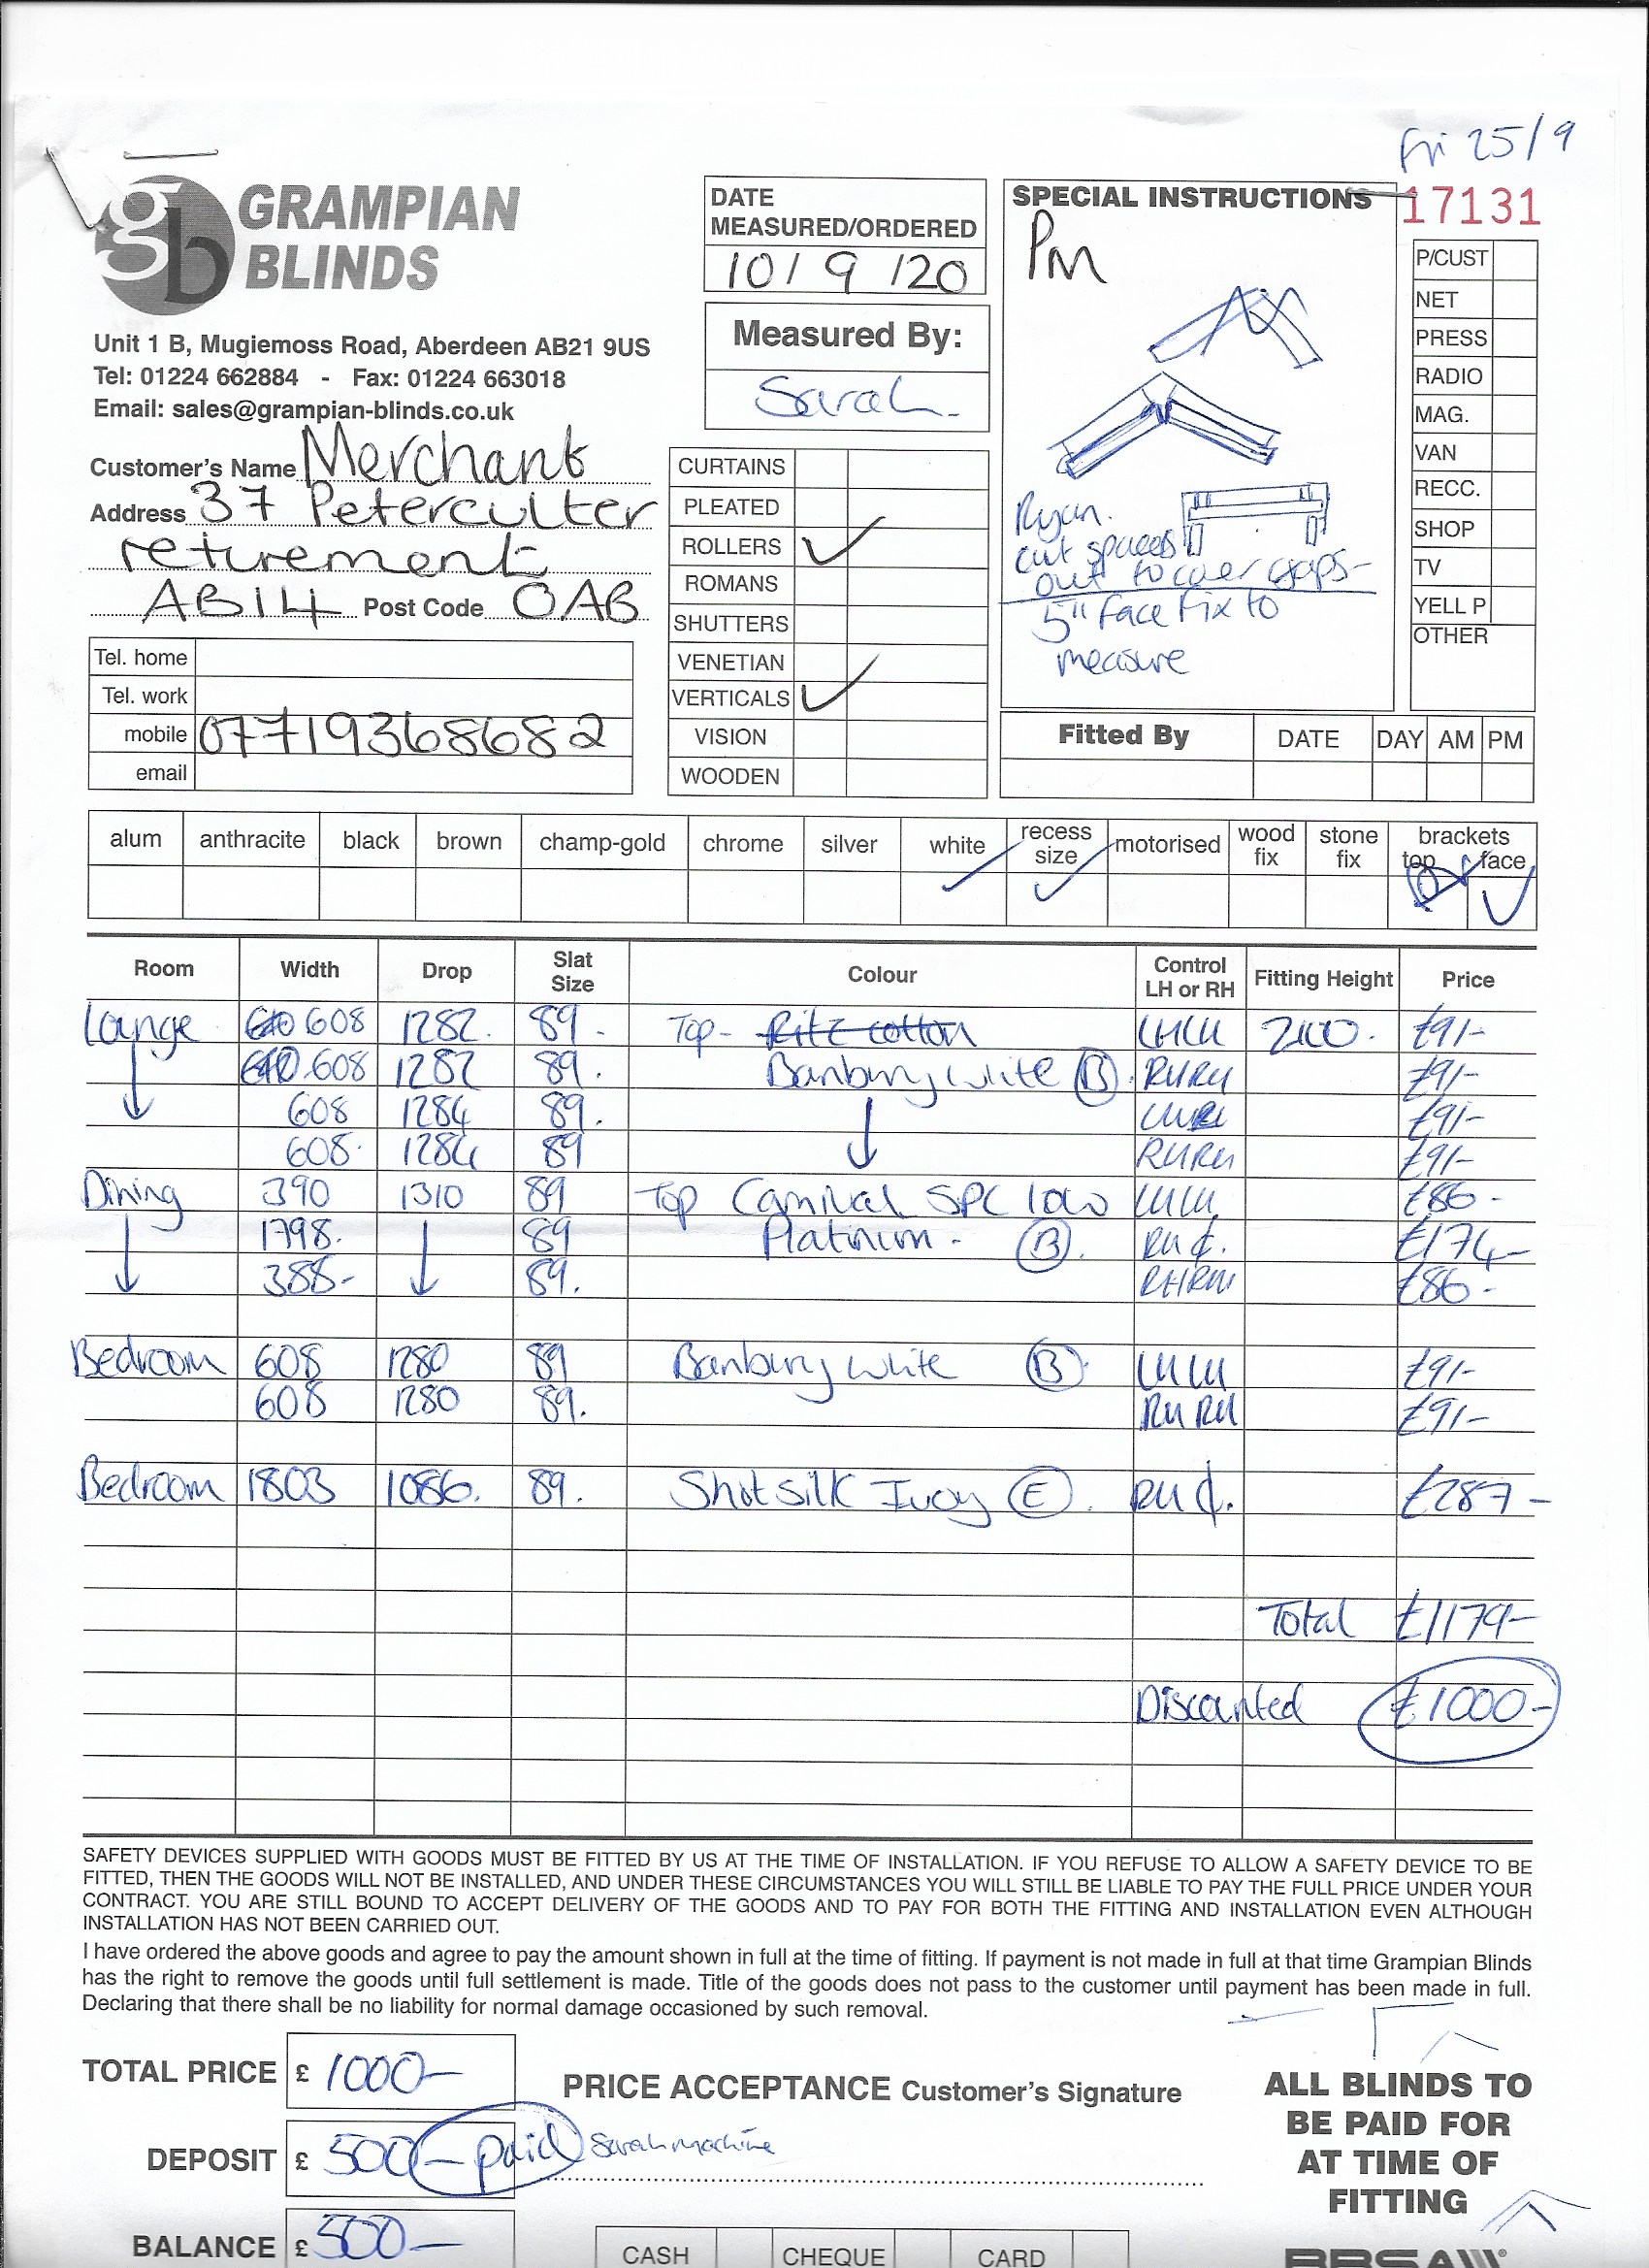 Fri 25/9
gb GRAMPIAN
BLINDS
Unit 1 B, Mugiemoss Road, Aberdeen AB21 9US
Tel: 01224 662884 - Fax: 01224 663018
Email: sales@grampian-blinds.co.uk
Customer's Name Merchant
Address 37 Peterculter
retirement
AB14 Post Code 0AB
Tel. home
Tel. work
mobile 07719368682
email
DATE
MEASURED/ORDERED
10/9/20
Measured By:
Sarah.
CURTAINS
PLEATED
ROLLERS ✓
ROMANS
SHUTTERS
VENETIAN
VERTICALS ✓
VISION
WOODEN
SPECIAL INSTRUCTIONS
PM
Ryan.
cut spaces
out to cover gaps-
5" face fix to
measure
17131
P/CUST
NET
PRESS
RADIO
MAG.
VAN
RECC.
SHOP
TV
YELL P
OTHER
Fitted By DATE DAY AM PM
alum anthracite black brown champ-gold chrome silver white ✓ recess size ✓ motorised wood fix stone fix brackets top face ✓
Room Width Drop Slat Size Colour Control LH or RH Fitting Height Price
Lounge 608 1282. 89 - Top - Ritz cotton LHLH 2100. £91-
608 1282 89. Banbury white B. RHRH £91-
608 1284 89. £91-
608. 1284 89 RHRH £91-
Dining 390 1310 89 Top Carnival SPC 100 LHLH £86-
1798. 89 Platinum - B. RH ₵. £174-
388- 89. RHRH £86-
Bedroom 608 1280 89 Banbury white B. LHLH £91-
608 1280 89. RHRH £91-
Bedroom 1803 1086. 89. Shot Silk Ivory E. RH ₵. £287-
Total £1179-
Discounted £1000-
SAFETY DEVICES SUPPLIED WITH GOODS MUST BE FITTED BY US AT THE TIME OF INSTALLATION. IF YOU REFUSE TO ALLOW A SAFETY DEVICE TO BE
FITTED, THEN THE GOODS WILL NOT BE INSTALLED, AND UNDER THESE CIRCUMSTANCES YOU WILL STILL BE LIABLE TO PAY THE FULL PRICE UNDER YOUR
CONTRACT. YOU ARE STILL BOUND TO ACCEPT DELIVERY OF THE GOODS AND TO PAY FOR BOTH THE FITTING AND INSTALLATION EVEN ALTHOUGH
INSTALLATION HAS NOT BEEN CARRIED OUT.
I have ordered the above goods and agree to pay the amount shown in full at the time of fitting. If payment is not made in full at that time Grampian Blinds
has the right to remove the goods until full settlement is made. Title of the goods does not pass to the customer until payment has been made in full.
Declaring that there shall be no liability for normal damage occasioned by such removal.
TOTAL PRICE £ 1000-
PRICE ACCEPTANCE Customer's Signature
DEPOSIT £ 500- paid Sarah machine
BALANCE £ 500-
CASH CHEQUE CARD
ALL BLINDS TO
BE PAID FOR
AT TIME OF
FITTING